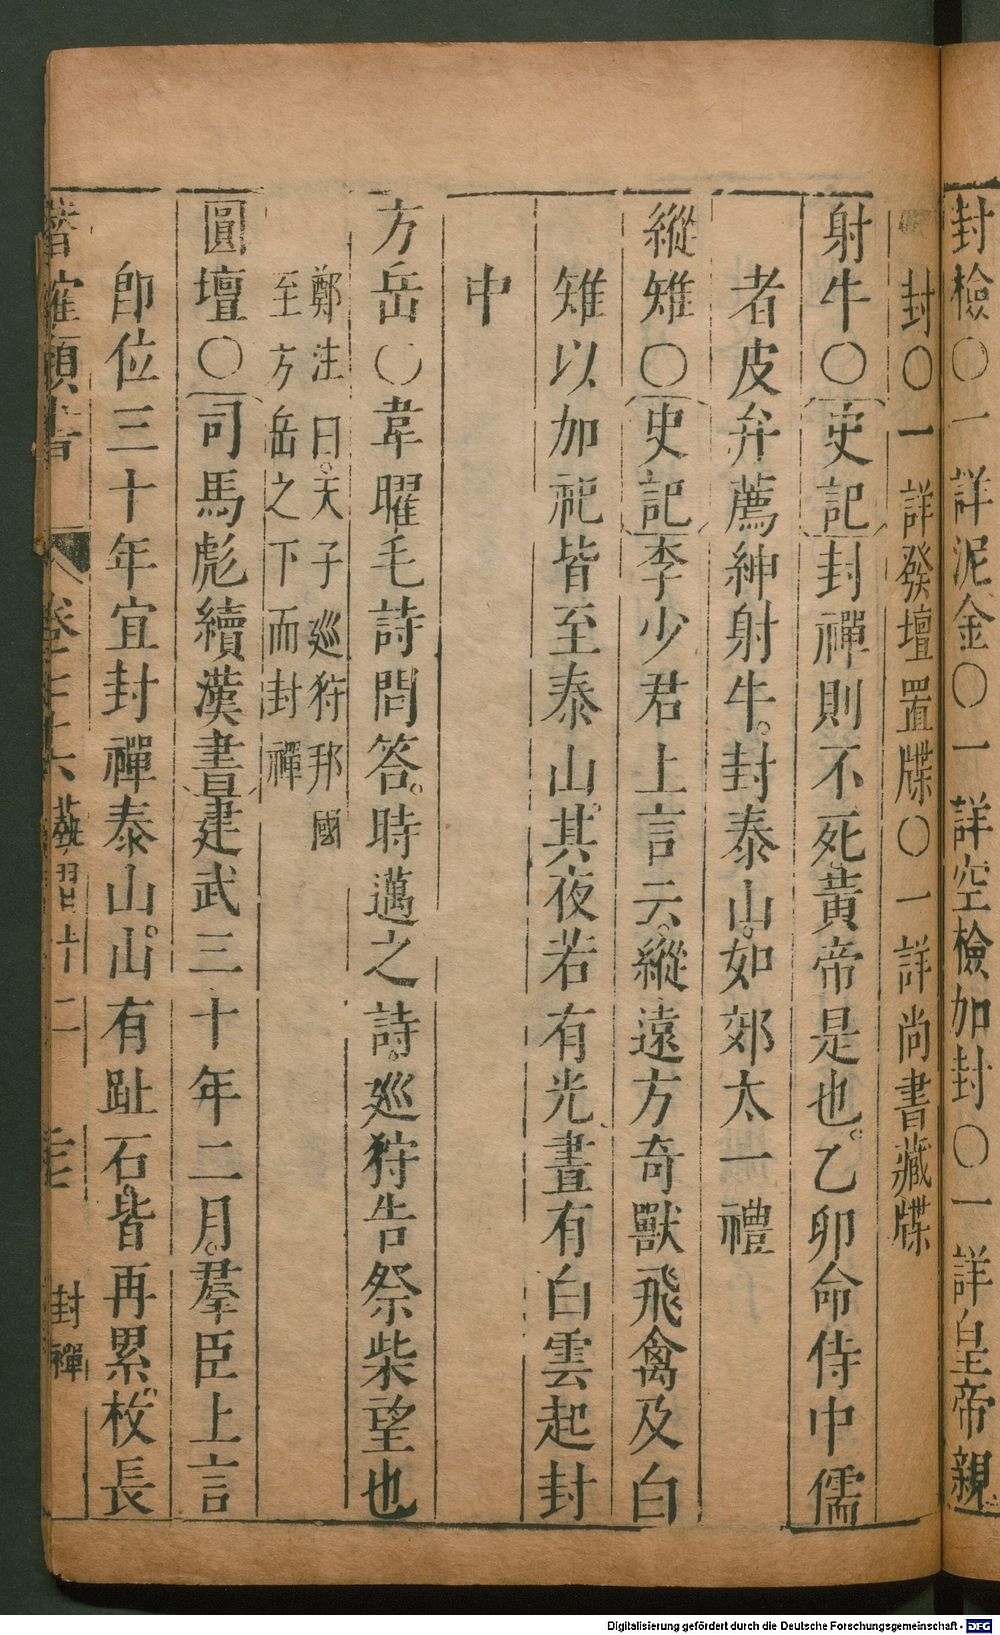 封檢○一詳泥金○一詳空檢加封○一詳皇帝親
封○一詳發壇置牒○一詳尚書藏牒
射牛○史記封禪則不死黃帝是也。乙卯命侍中儒
者皮弁薦紳射牛。封泰山。如郊太一禮
縱雉○史記李少君上言云。縱遠方奇獸飛禽及白
雉以加祀皆至泰山。其夜若有光晝有白雲起封
中
方岳○韋曜毛詩問答。時邁之詩。巡狩告祭柴望也
鄭注曰。天子巡狩邦國
至方岳之下而封禪
圓壇○司馬彪續漢書建武三十年二月。羣臣上言
卽位三十年宜封禪泰山。山有趾石皆再累枚長
卷二十六 藝習十二 封禪
Digitalisierung gefördert durch die Deutsche Forschungsgemeinschaft - DFG